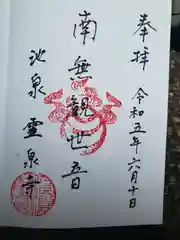 奉拝 令和五年六月十日
南無観世音
池泉 霊泉寺